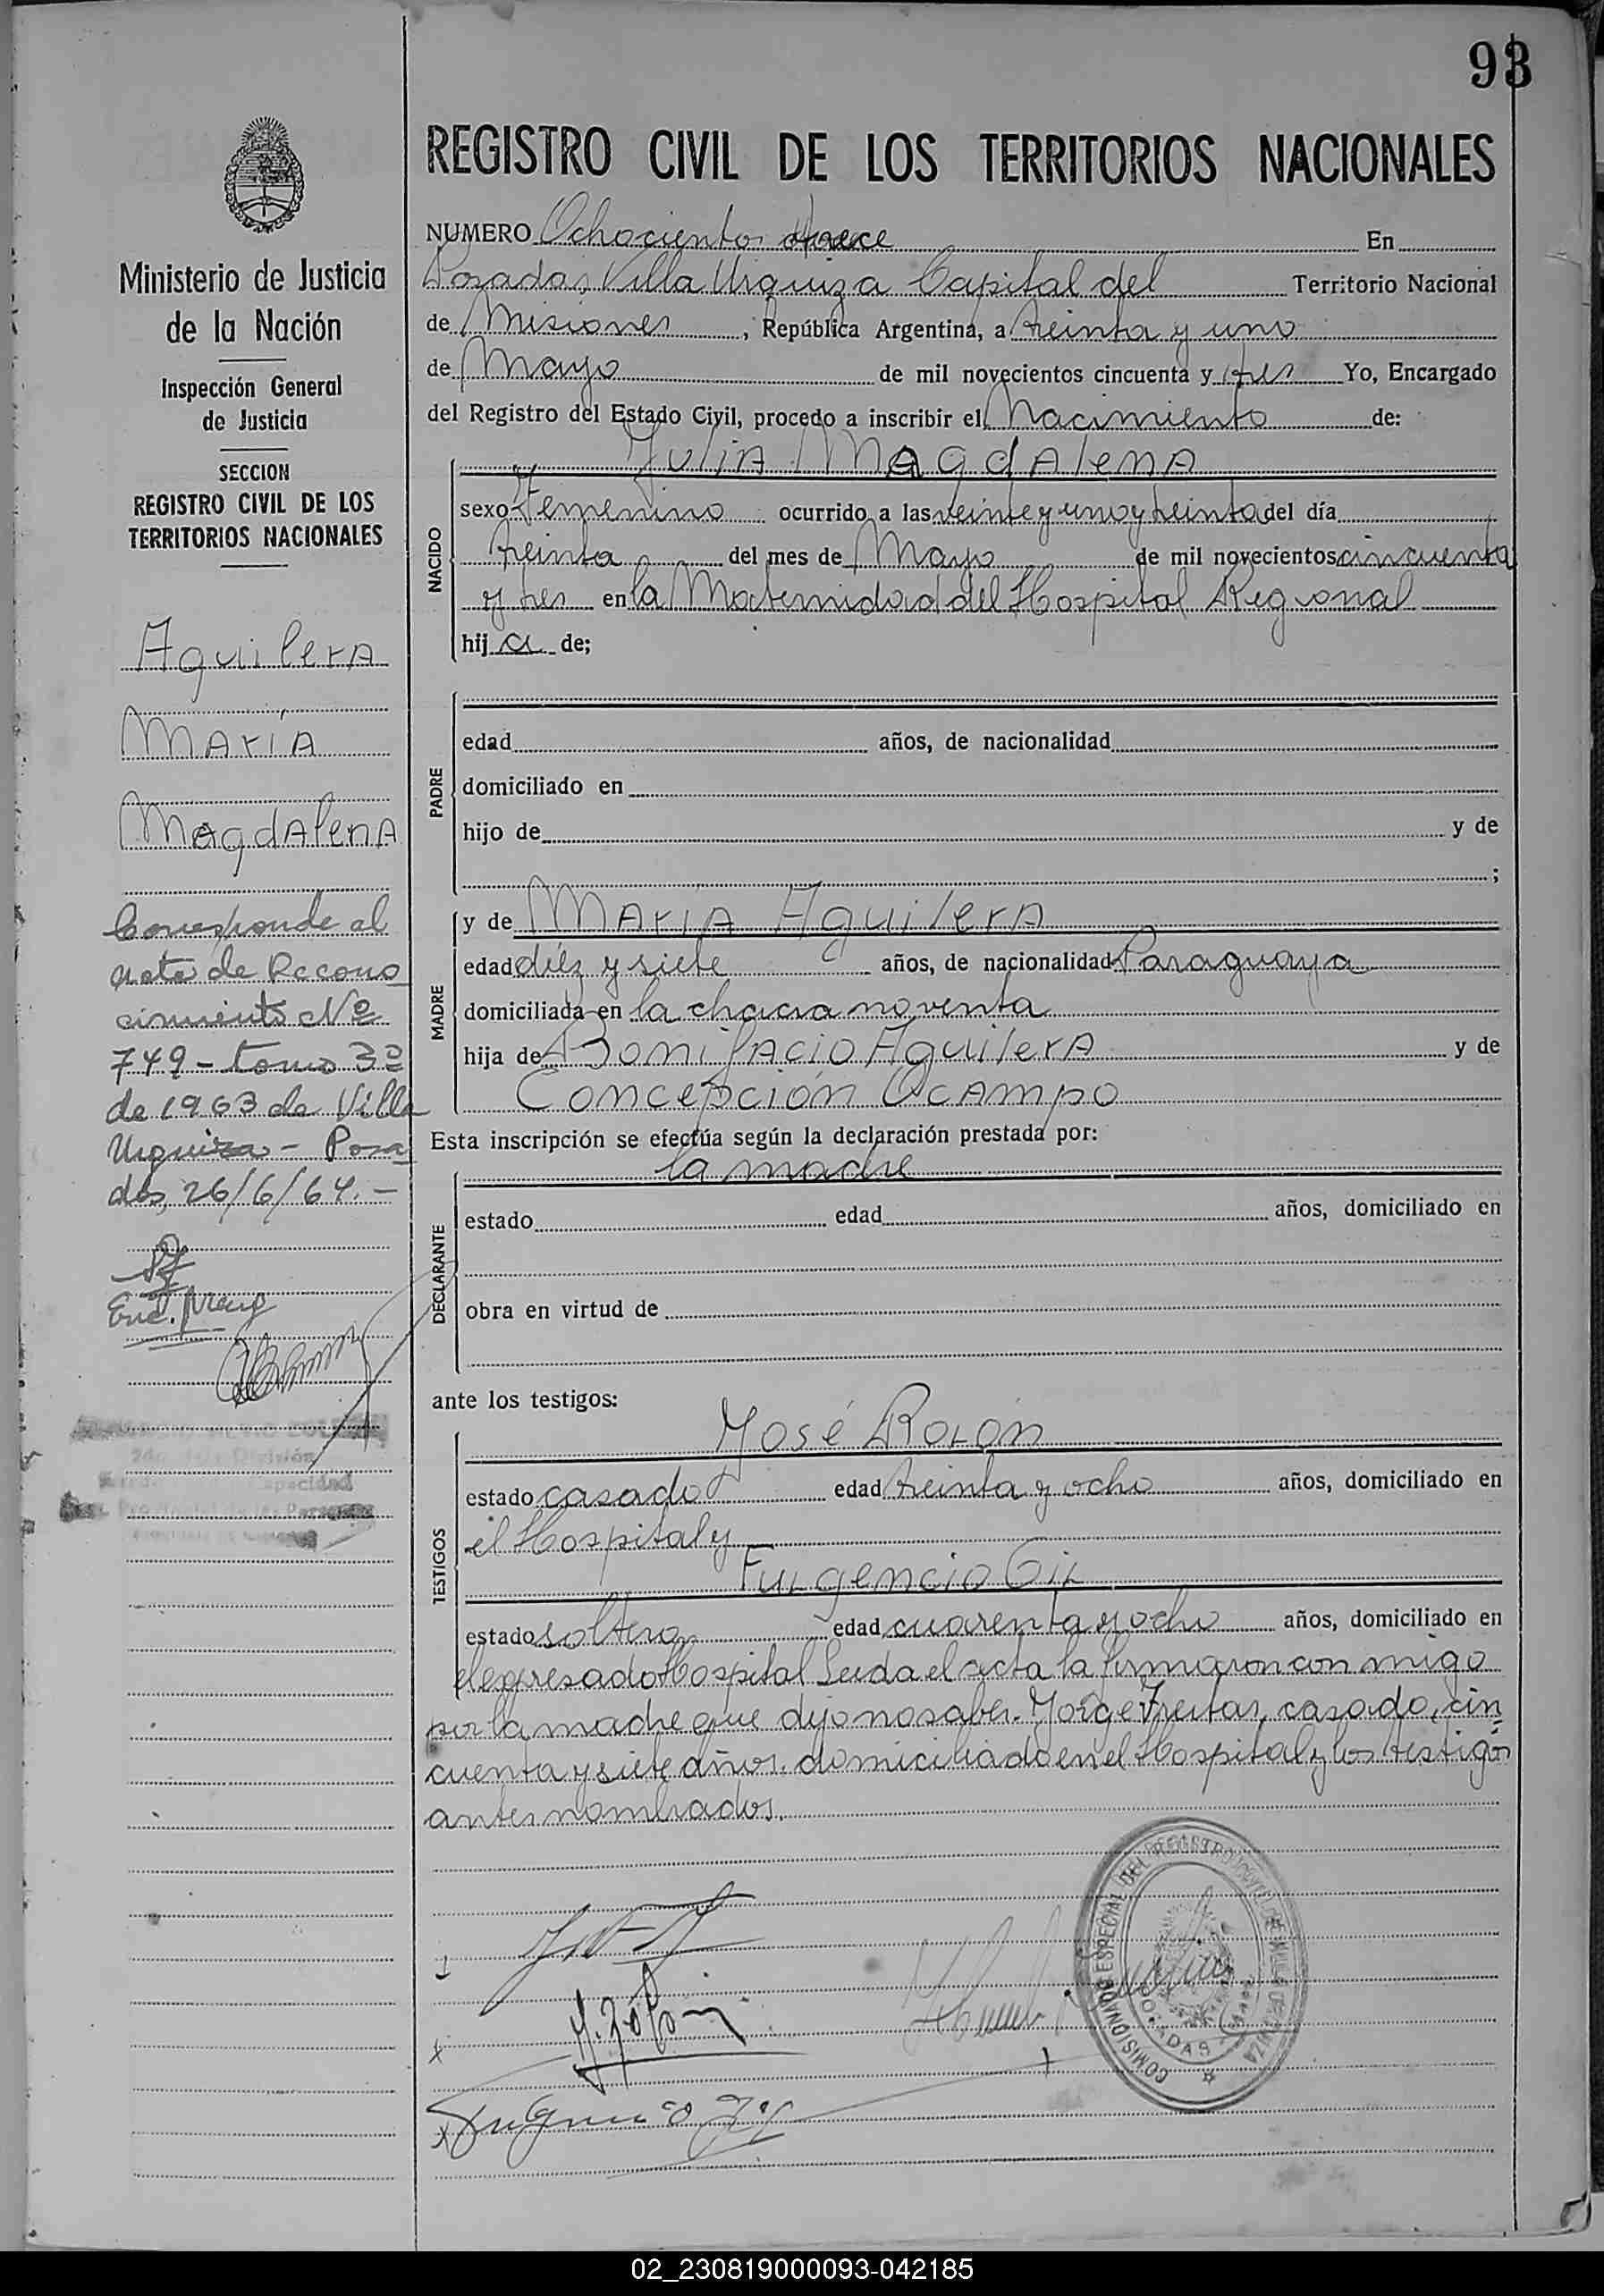 93
REGISTRO CIVIL DE LOS TERRITORIOS NACIONALES
NUMERO Ochocientos trece En
Posadas, Villa Urquiza Capital del Territorio Nacional
de Misiones, República Argentina, a treinta y uno
de Mayo de mil novecientos cincuenta y tres Yo, Encargado
del Registro del Estado Civil, procedo a inscribir el Nacimiento de:
NACIDO
Julia Magdalena
sexo Femenino ocurrido a las veinte y uno y treinta del día
treinta del mes de Mayo de mil novecientos cincuenta
y tres en la Maternidad del Hospital Regional
hij a de;
PADRE
edad años, de nacionalidad
domiciliado en
hijo de y de
;
MADRE
y de Maria Aguilera
edad diéz y siete años, de nacionalidad Paraguaya
domiciliada en la chacra noventa
hija de Bonifacio Aguilera y de
Concepción Ocampo
Esta inscripción se efectúa según la declaración prestada por:
DECLARANTE
la madre
estado edad años, domiciliado en
obra en virtud de
ante los testigos:
TESTIGOS
José Rolón
estado casado edad treinta y ocho años, domiciliado en
el Hospital y
Fulgencio Gil
estado soltero edad cuarenta y ocho años, domiciliado en
el expresado Hospital Leida el acta la firmaron con migo
por la madre que dijo no saber. Jorge Freitas, casado, cin
cuenta y siete años. domiciliado en el Hospital y los testigos
antes nombrados.
COMISIONADO ESPECIAL DEL REGISTRO CIVIL
POSADAS
Ministerio de Justicia
de la Nación
Inspección General
de Justicia
SECCION
REGISTRO CIVIL DE LOS
TERRITORIOS NACIONALES
Aguilera
María
Magdalena
Corresponde al
acta de Recono
cimiento Nº
749 - tomo 3º
de 1963 de Villa
Urquiza - Posa
das, 26/6/64.-
02_230819000093-042185